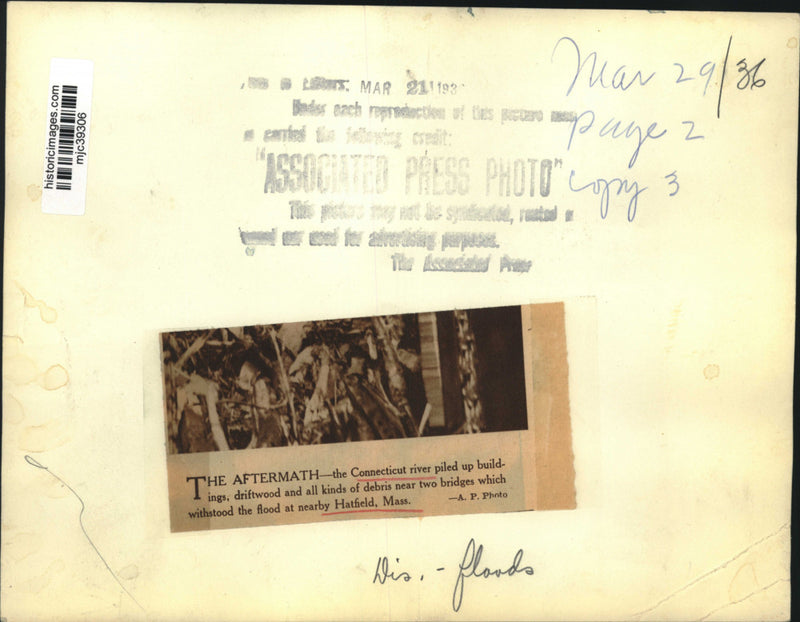 historicimages.com
mjc39306
MAR 21 193
Mar 29/36
Under each reproduction of this picture
page 2
carried the following credit:
"ASSOCIATED PRESS PHOTO"
copy 3
This picture may not be syndicated, rented
nor used for advertising purposes.
The Associated Press
THE AFTERMATH—the Connecticut river piled up build-
ings, driftwood and all kinds of debris near two bridges which
withstood the flood at nearby Hatfield, Mass. —A. P. Photo
Dis. - floods